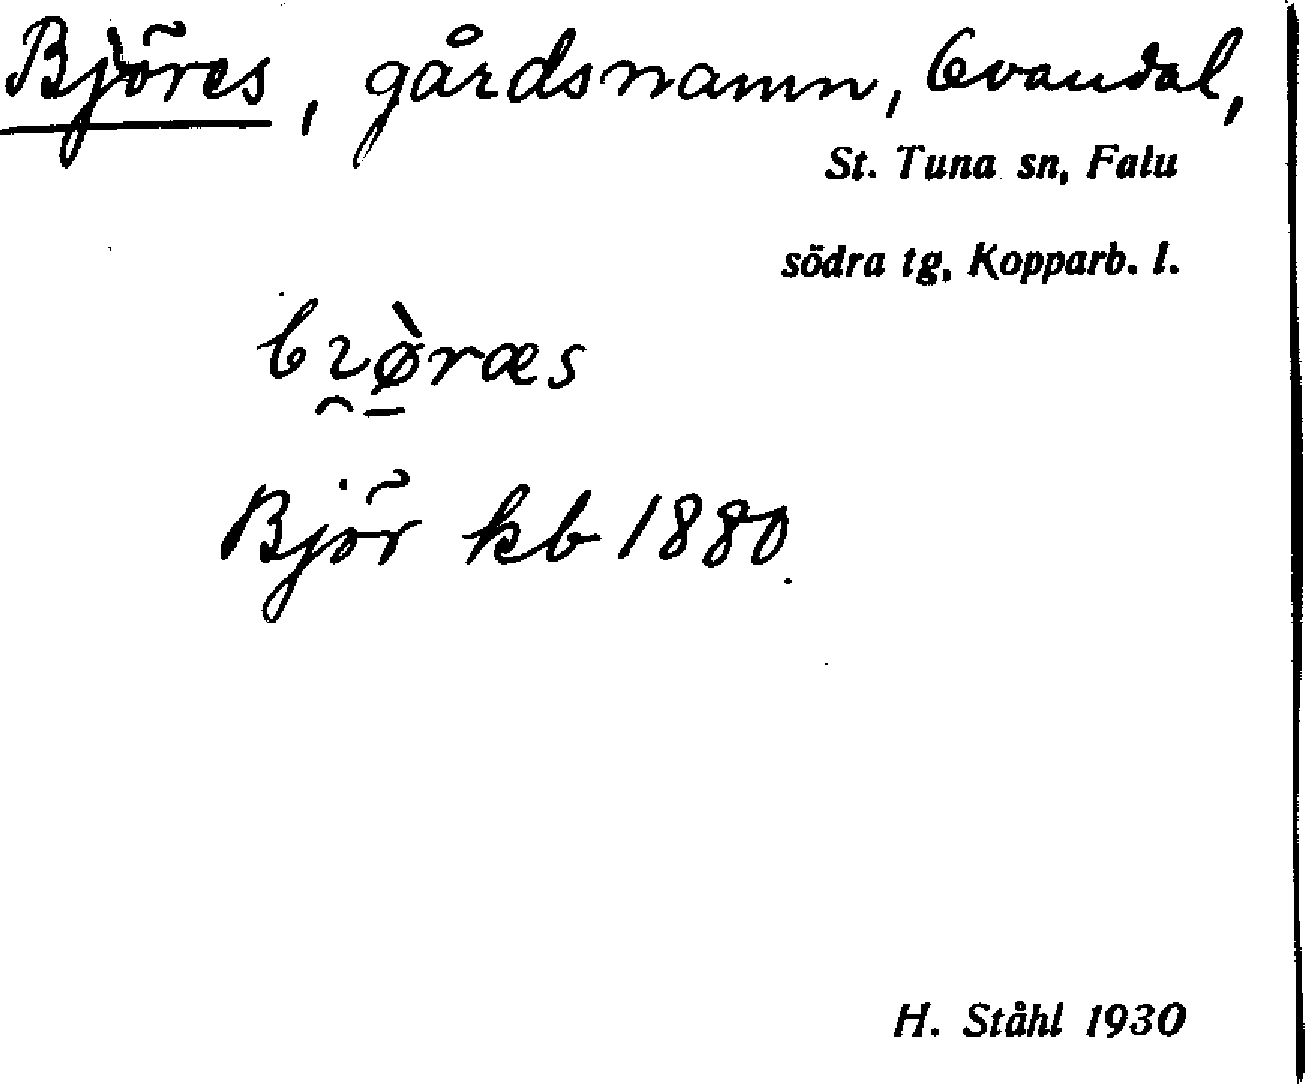 Björes, gårdsnamn, Övandal,
St. Tuna sn, Falu
södra tg, Kopparb. l.
Björ kb 1880.
H. Ståhl 1930